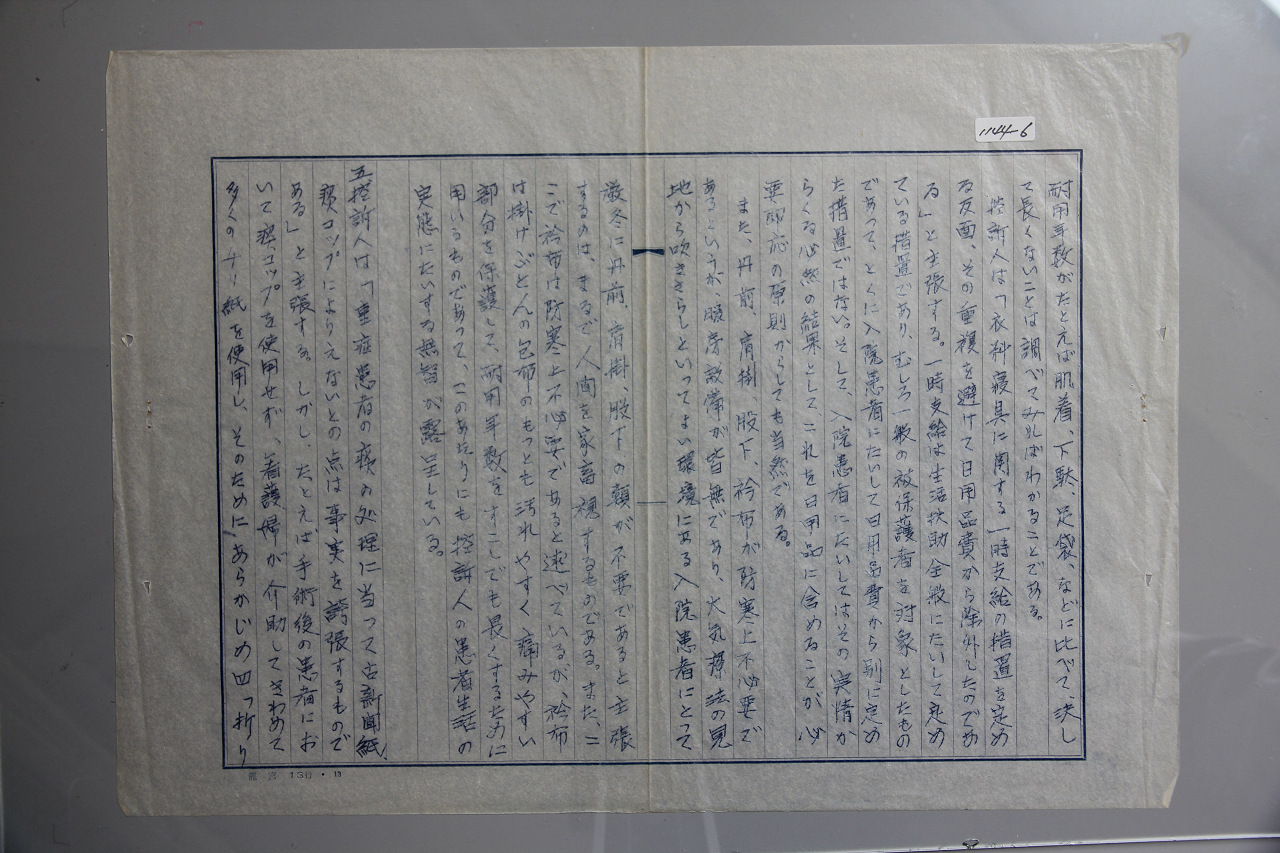 1144-6
耐用年数がたとえば肌着、下駄、足袋、などに比べて、決し
て長くないことは調べてみればわかることである。
控訴人は「衣料寝具に関する一時支給の措置を定め
る反面、その重複を避けて日用品費から除外したのであ
る」と主張する。一時支給は生活扶助全般にたいして定め
ている措置であり、むしろ一般の被保護者を対象としたもの
であって、とくに入院患者にたいして日用品費から別に定め
た措置ではない。そして、入院患者にたいしてはその実情か
らくる必然の結果として、これを日用品に含めることが、必
要即応の原則からしても当然である。
また、丹前、肩掛、股下、衿布が防寒上不必要で
あるというが、暖房設備が皆無であり、大気療法の見
地から吹きさらしといってよい環境にある入院患者にとって
厳冬に丹前、肩掛、股下の類が不要であると主張
するのは、まるで人間を家畜視するものである。また、こ
こで衿布は防寒上不必要であると述べているが、衿布
は掛けぶとんの包布のもっとも汚れやすく、痛みやすい
部分を保護して、耐用年数をすこしでも長くするために
用いるものであって、このあたりにも控訴人の患者生活の
実態にたいする無智が露呈している。
五控訴人は「重症患者の痰の処理に当って古新聞紙、
痰コップによりえないとの点は事実を誇張するもので
ある」と主張する。しかし、たとえば手術後の患者にお
いて痰コップを使用せず、看護婦が介助してきわめて
多くのチリ紙を使用し、そのためにあらかじめ四つ折り
龍宮 13行・13